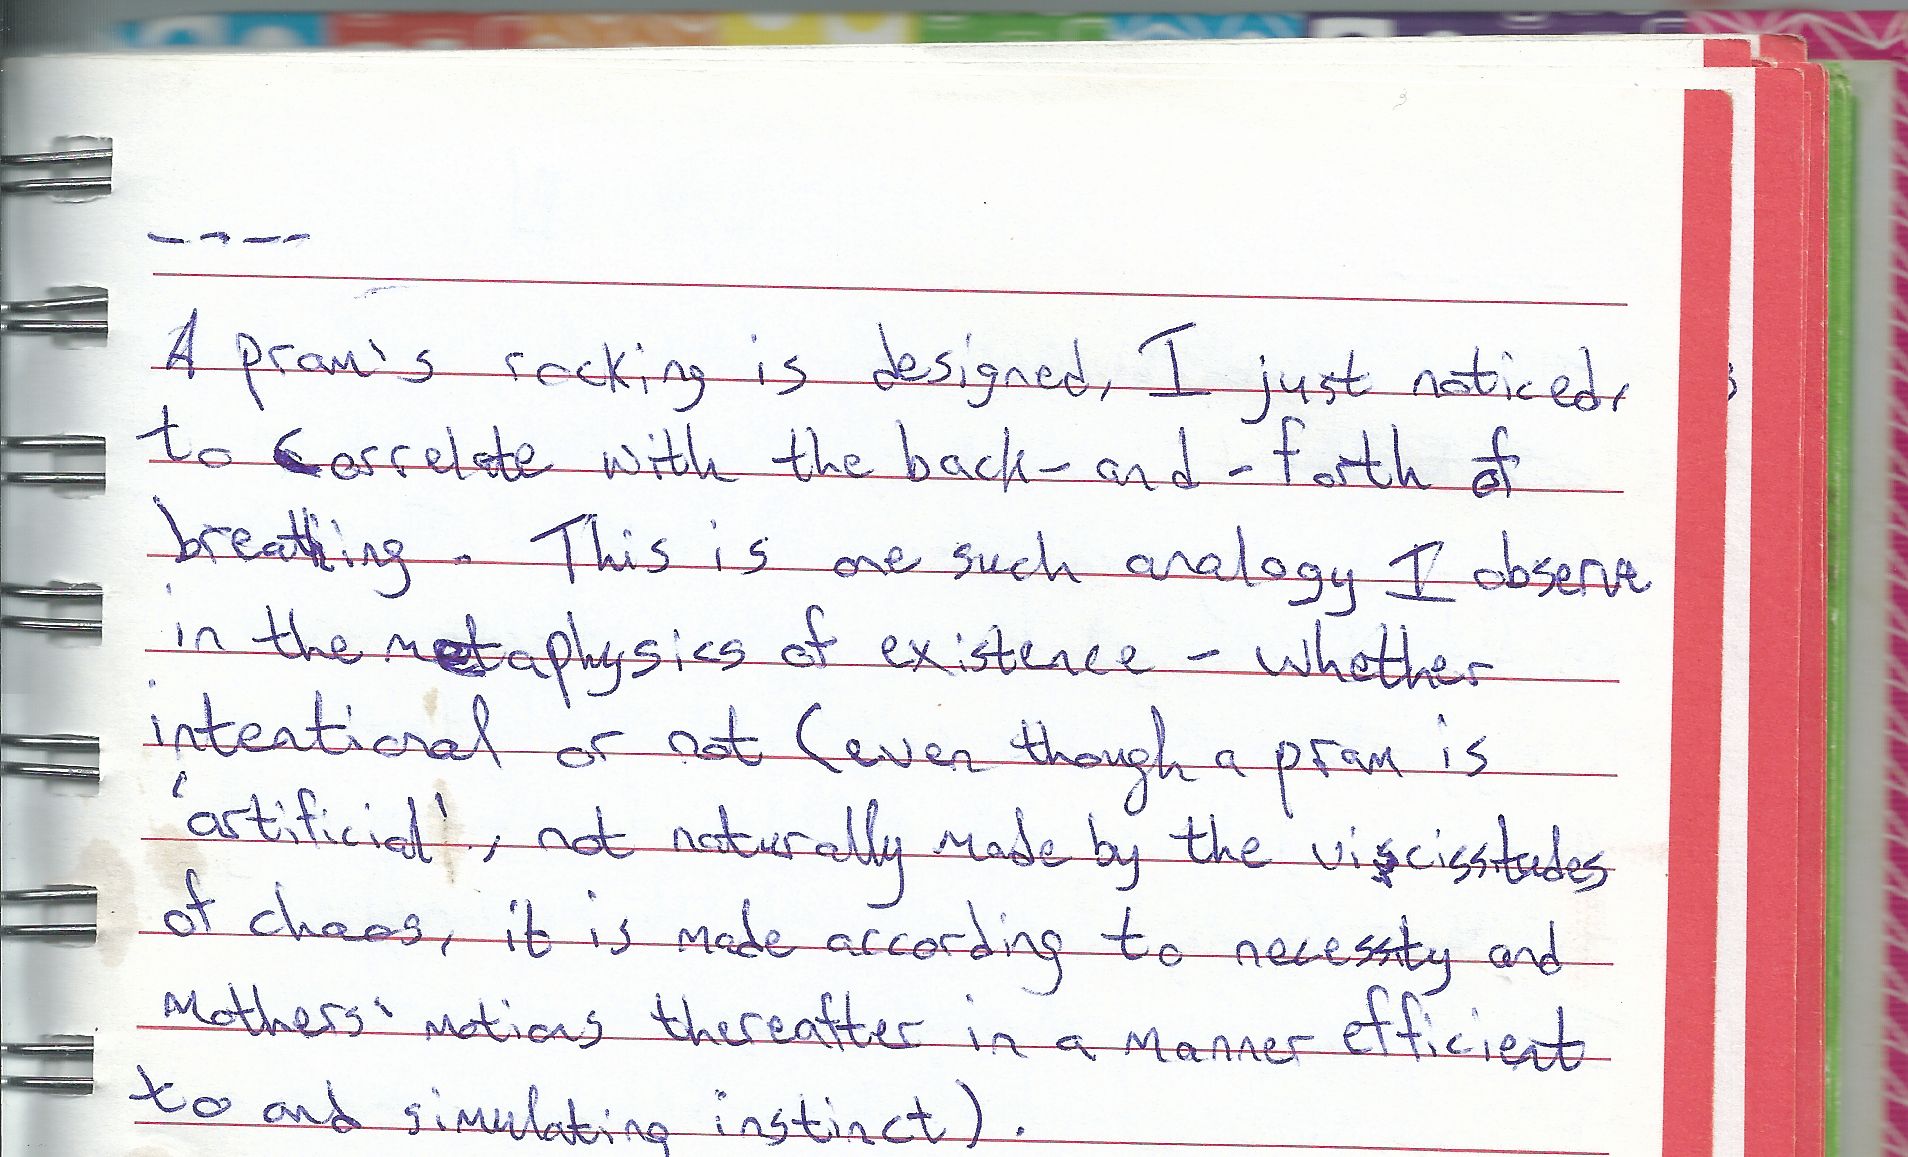 ----
A pram's rocking is designed, I just noticed,
to correlate with the back-and-forth of
breathing. This is one such analogy I observe
in the metaphysics of existence - whether
intentional or not (even though a pram is
'artificial', not naturally made by the viscisstudes
of chaos, it is made according to necessity and
Mothers' motions thereafter in a manner efficient
to and simulating instinct).